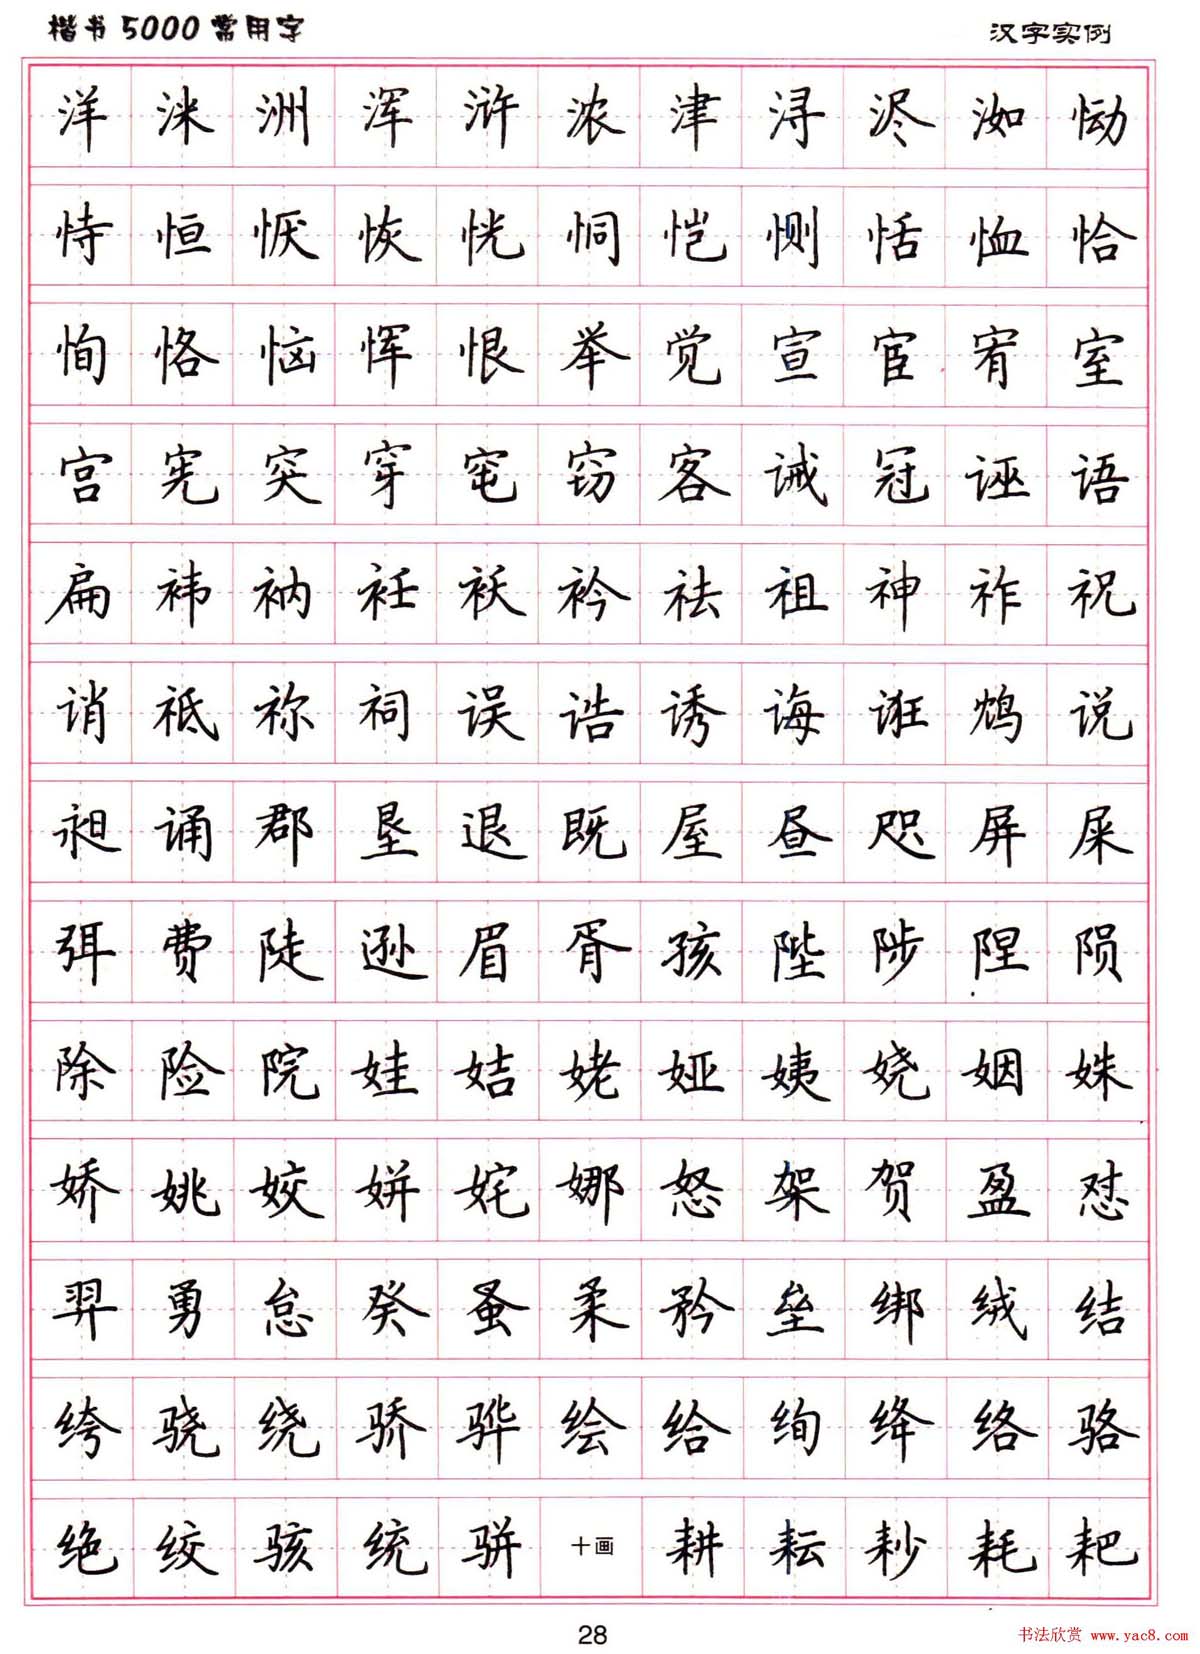 楷书5000常用字 汉字实例
洋 洣 洲 浑 浒 浓 津 浔 浕 洳 恸
恃 恒 恹 恢 恍 恫 恺 恻 恬 恤 恰
恂 恪 恼 恽 恨 举 觉 宣 宦 宥 室
宫 宪 突 穿 窀 窃 客 诫 冠 诬 语
扁 袆 衲 衽 袄 衿 祛 祖 神 祚 祝
诮 祗 祢 祠 误 诰 诱 诲 诳 鸩 说
昶 诵 郡 垦 退 既 屋 昼 咫 屏 屎
弭 费 陡 逊 眉 胥 孩 陛 陟 陧 陨
除 险 院 娃 姞 姥 娅 姨 娆 姻 姝
娇 姚 姣 姘 姹 娜 怒 架 贺 盈 怼
羿 勇 怠 癸 蚤 柔 矜 垒 绑 绒 结
绔 骁 绕 骄 骅 绘 给 绚 绛 络 骆
绝 绞 骇 统 骈 十画 耕 耘 耖 耗 耙
28
书法欣赏 www.yac8.com